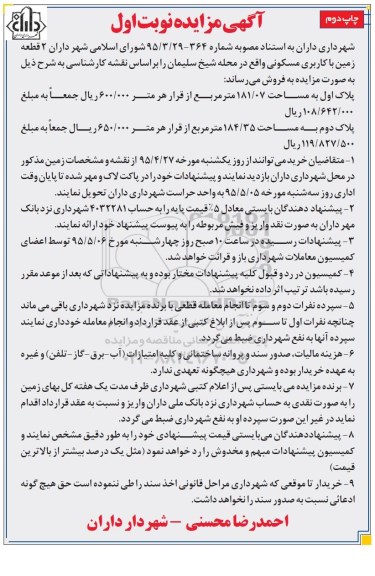 چاپ دوم
آگهی مزایده نوبت اول
شهرداری داران به استناد مصوبه شماره ۳۶۴-۹۵/۳/۲۹ شورای اسلامی شهر داران ۲ قطعه
زمین با کاربری مسکونی واقع در محله شیخ سلیمان را براساس نقشه کارشناسی به شرح ذیل
به صورت مزایده به فروش می‌رساند:
پلاک اول به مساحت ۱۸۱/۰۷ متر مربع از قرار هر متر ۶۰۰/۰۰۰ ریال جمعاً به مبلغ
۱۰۸/۶۴۲/۰۰۰ ریال
پلاک دوم به مساحت ۱۸۴/۳۵ مترمربع از قرار هر متر ۶۵۰/۰۰۰ ریال جمعاً به مبلغ
۱۱۹/۸۲۷/۵۰۰ ریال
۱- متقاضیان خرید می توانند از روز یکشنبه مورخه ۹۵/۴/۲۷ از نقشه و مشخصات زمین مذکور
در محل شهرداری داران بازدید نمایند و پیشنهادات خود را در پاکت لاک و مهر شده تا پایان وقت
اداری روز سه شنبه مورخه ۹۵/۵/۰۵ به واحد حراست شهرداری داران تحویل نمایند.
۲- پیشنهاد دهندگان بایستی معادل ۵٪ قیمت پایه را به حساب ۴۰۳۲۲۸۱ شهرداری نزد بانک
مهر داران به صورت نقد واریز و فیش مربوطه را به پیوست پیشنهاد خود ارائه نمایند.
۳- پیشنهادات رسیده در ساعت ۱۰ صبح روز چهارشنبه مورخ ۹۵/۵/۰۶ توسط اعضای
کمیسیون معاملات شهرداری باز و قرائت خواهد شد.
۴- کمیسیون در رد و قبول کلیه پیشنهادات مختار بوده و به پیشنهاداتی که بعد از موعد مقرر
رسیده باشد ترتیب اثر داده نخواهد شد.
۵- سپرده نفرات دوم و سوم تا انجام معامله قطعی با برنده مزایده نزد شهرداری باقی می ماند
چنانچه نفرات اول تا سوم پس از ابلاغ کتبی از عقد قرارداد و انجام معامله خودداری نمایند
سپرده آنها به نفع شهرداری ضبط می گردد.
۶- هزینه مالیات، صدور سند و پروانه ساختمانی و کلیه امتیازات (آب-برق-گاز-تلفن) و غیره
به عهده خریدار بوده و شهرداری هیچگونه تعهدی ندارد.
۷- برنده مزایده می بایستی پس از اعلام کتبی شهرداری ظرف مدت یک هفته کل بهای زمین
را به صورت نقدی به حساب شهرداری نزد بانک ملی داران واریز و نسبت به عقد قرارداد اقدام
نماید در غیر این صورت سپرده او به نفع شهرداری ضبط می گردد.
۸- پیشنهاددهندگان می‌بایستی قیمت پیشنهادی خود را به طور دقیق مشخص نمایند و
کمیسیون پیشنهادات مبهم و مخدوش را رد خواهد نمود (مثل یک درصد بیشتر از بالاترین
قیمت)
۹- خریدار تا موقعی که شهرداری مراحل قانونی اخذ سند را طی ننموده است حق هیچ گونه
ادعائی نسبت به صدور سند را نخواهد داشت.
احمدرضا محسنی - شهردار داران